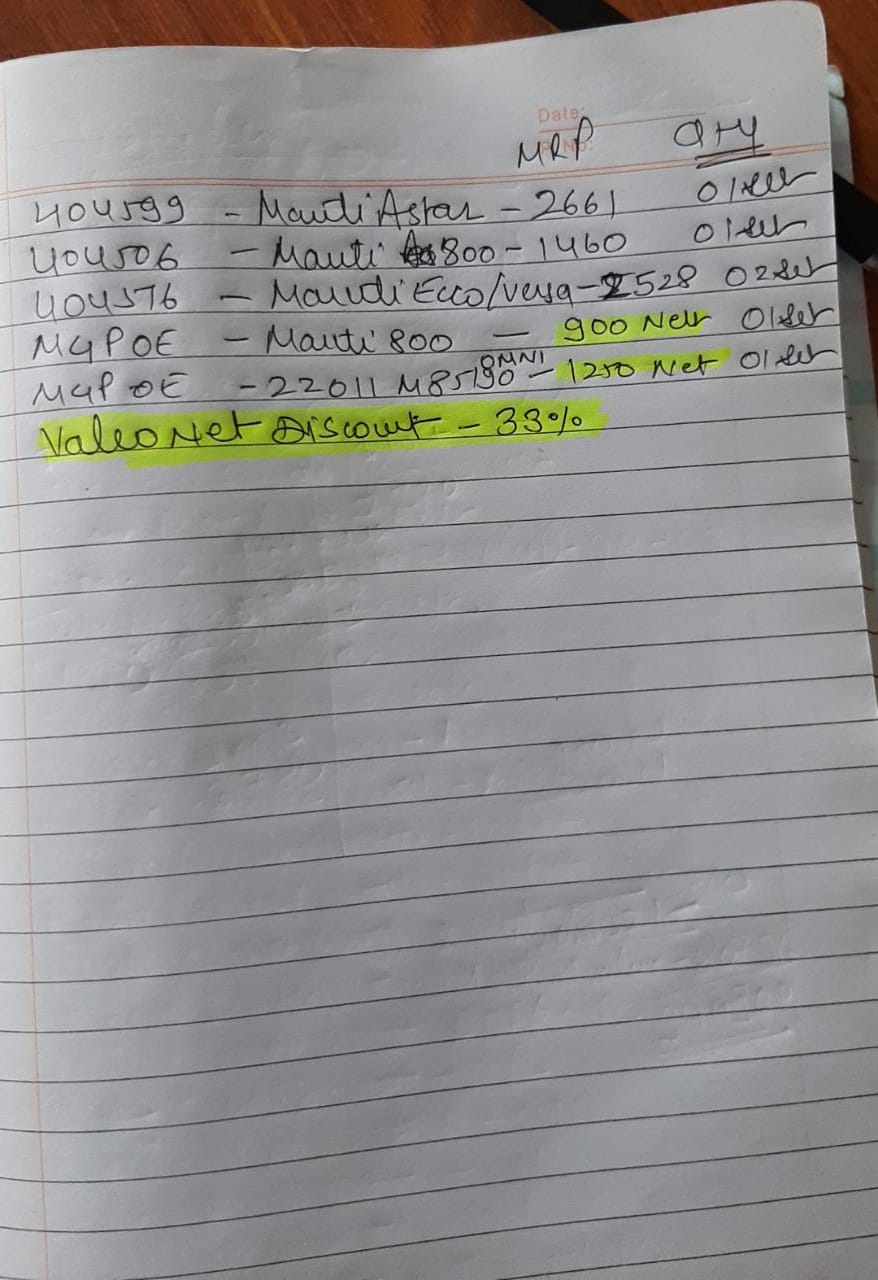 Date:
MRP Qty
404599 - Maruti Astar - 2661 01 set
404506 - Maruti 800 - 1460 01 set
404576 - Maruti Ecco/versa - 2528 02 set
MGP OE - Maruti 800 - 900 Net 01 set
OMNI
MGP OE - 22011 M85190 - 1250 Net 01 set
Valeo Net Discount - 33%